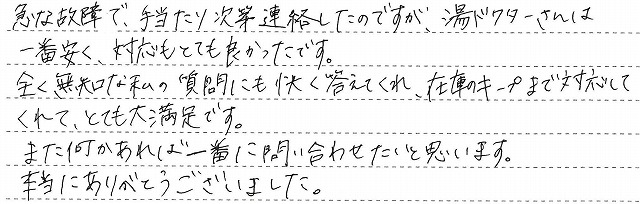 急な故障で、手当たり次第連絡したのですが、湯ドクターさんは
一番安く、対応もとても良かったです。
全く無知な私の質問にも快く答えてくれ、在庫のキープまで対応して
くれて、とても大満足です。
また何かあれば一番に問い合わせたいと思います。
本当にありがとうございました。